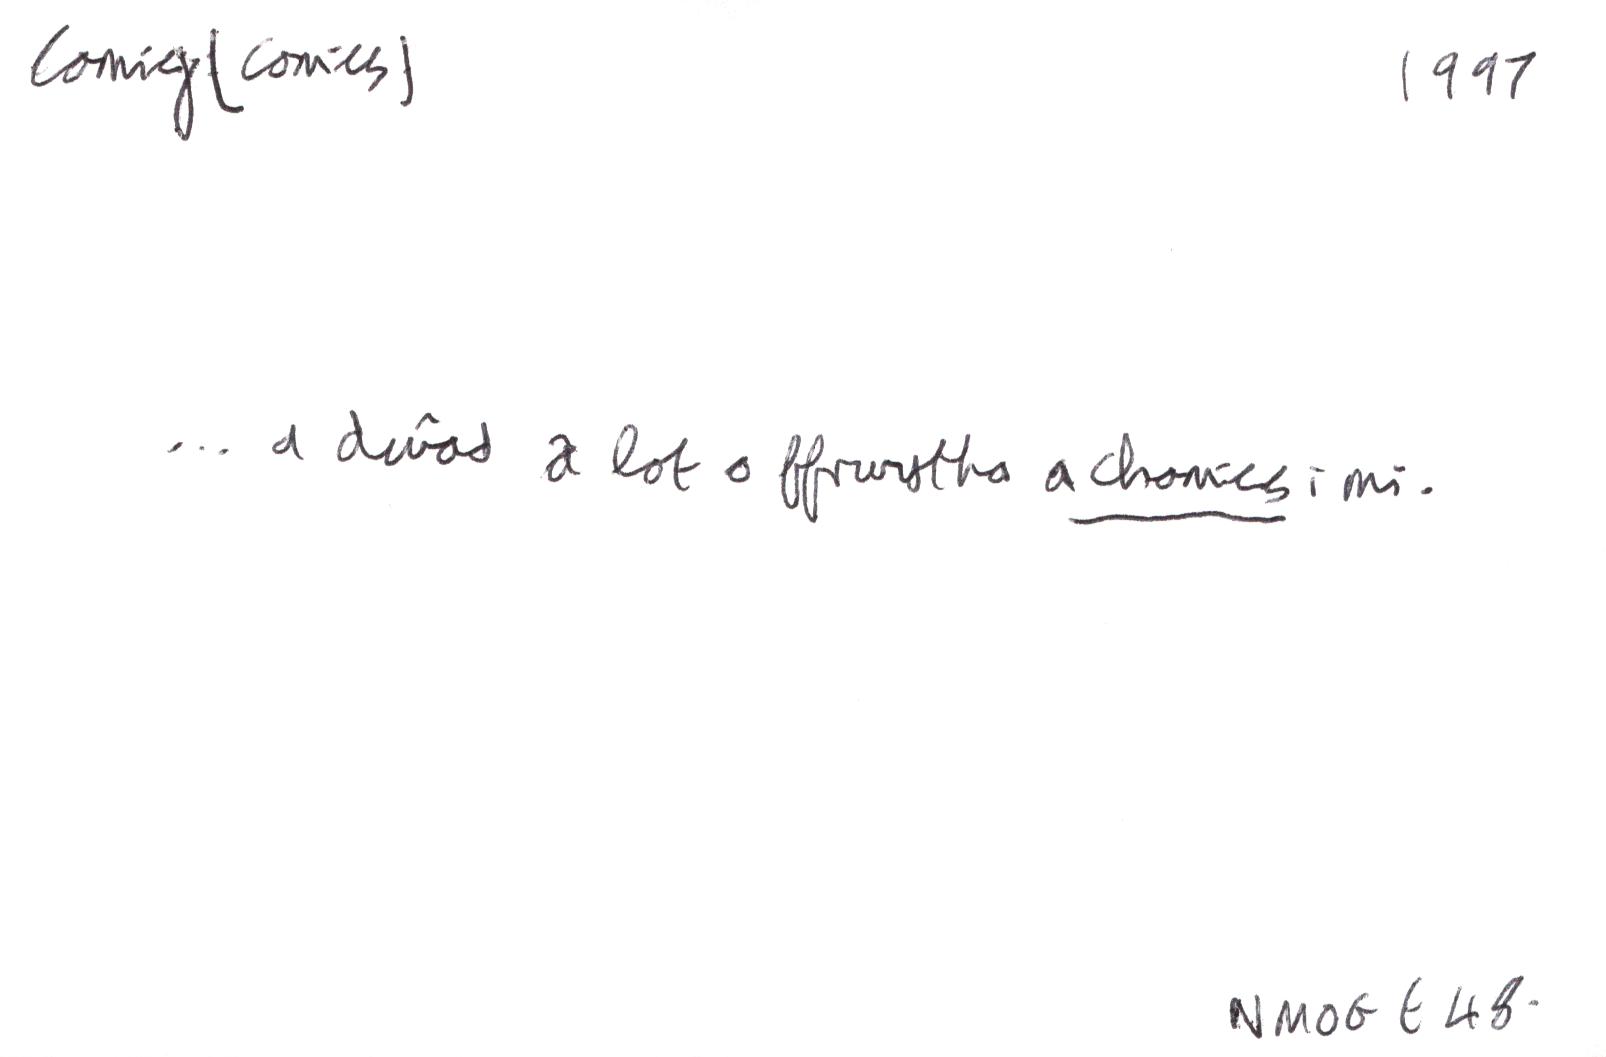 Comig [comics] 1997
... a dŵad â lot o ffrwytha a chomics i mi.
NMOG E 48.